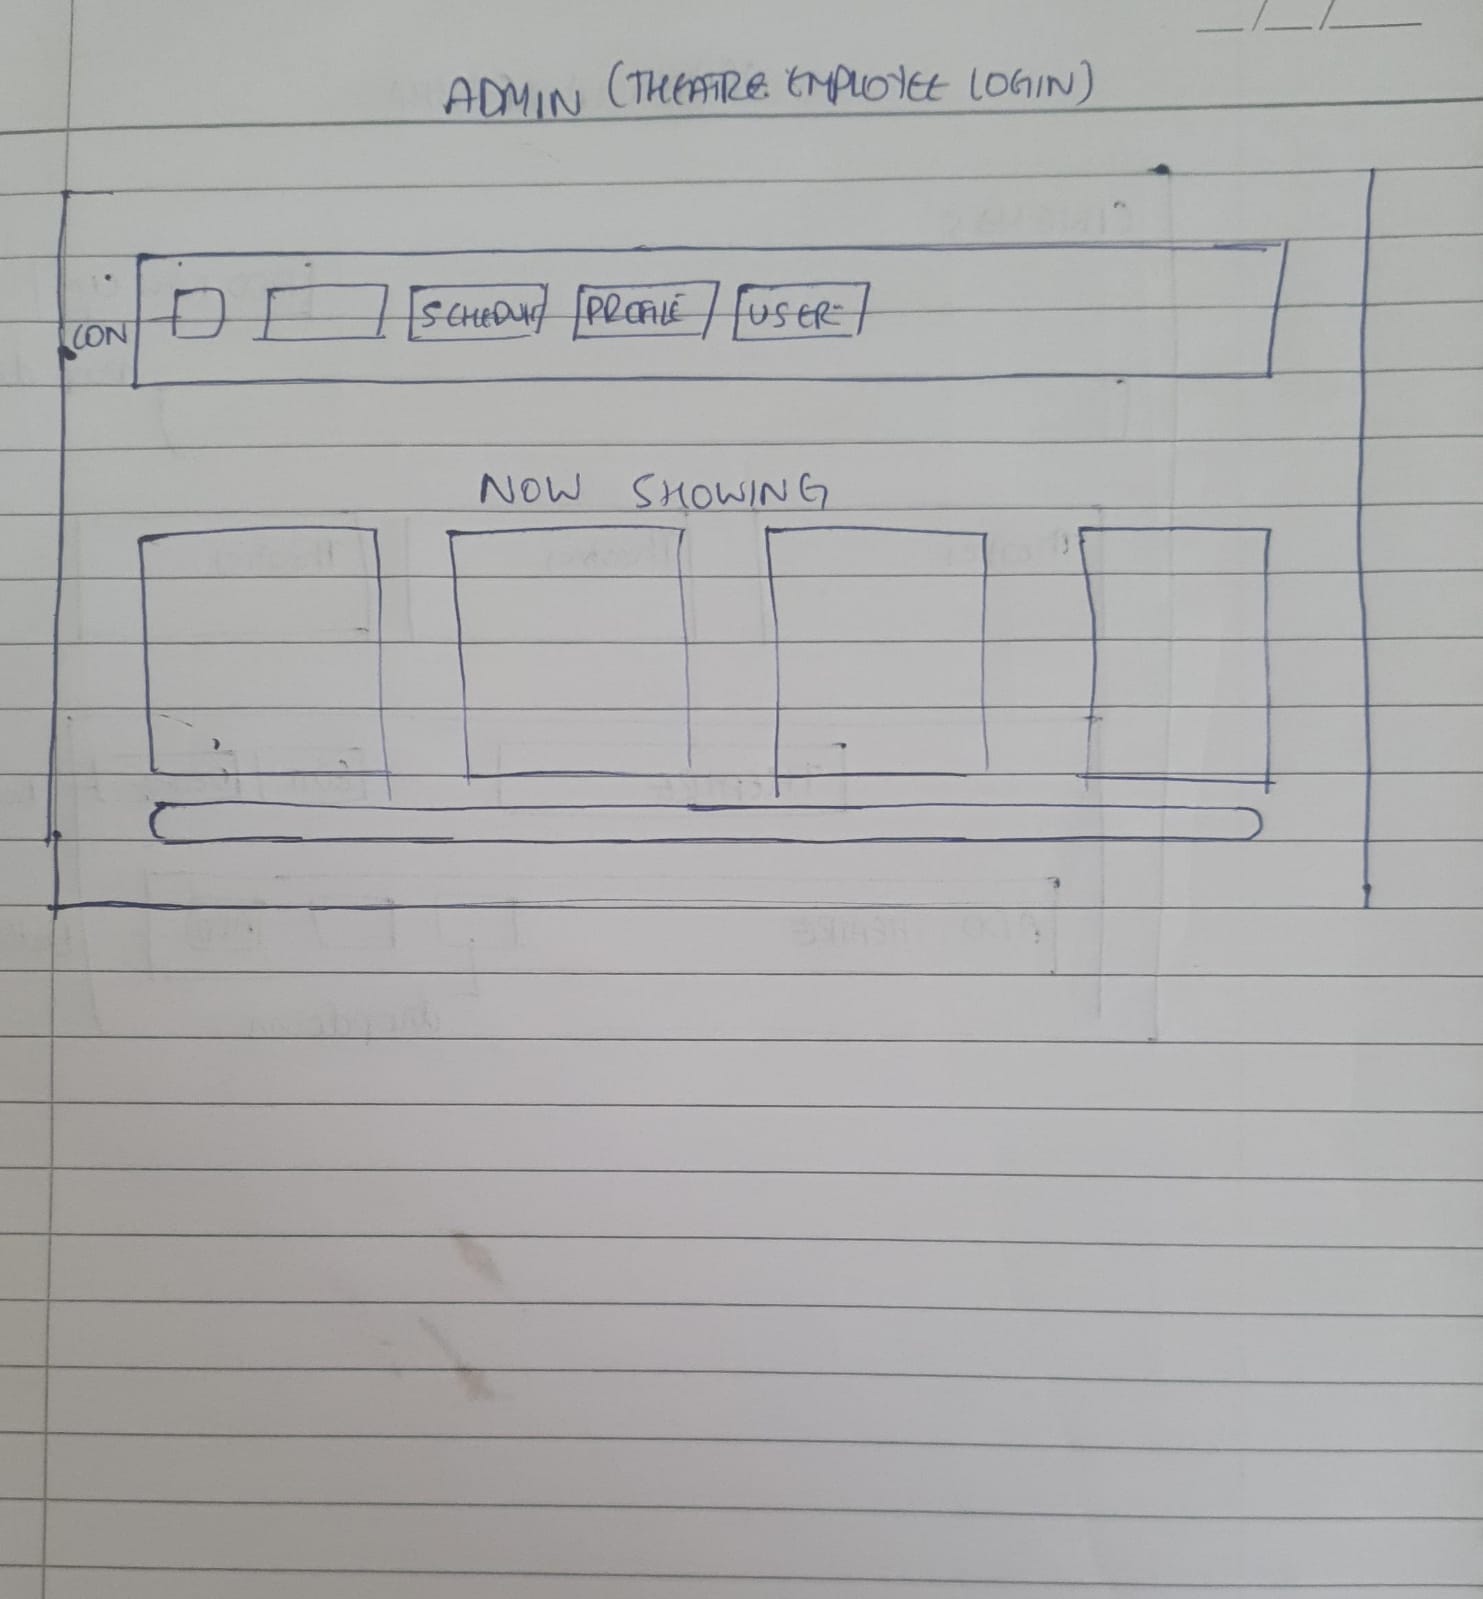 ADMIN (THEATRE EMPLOYEE LOGIN)
ICON SCHEDULE PROFILE USER
NOW SHOWING